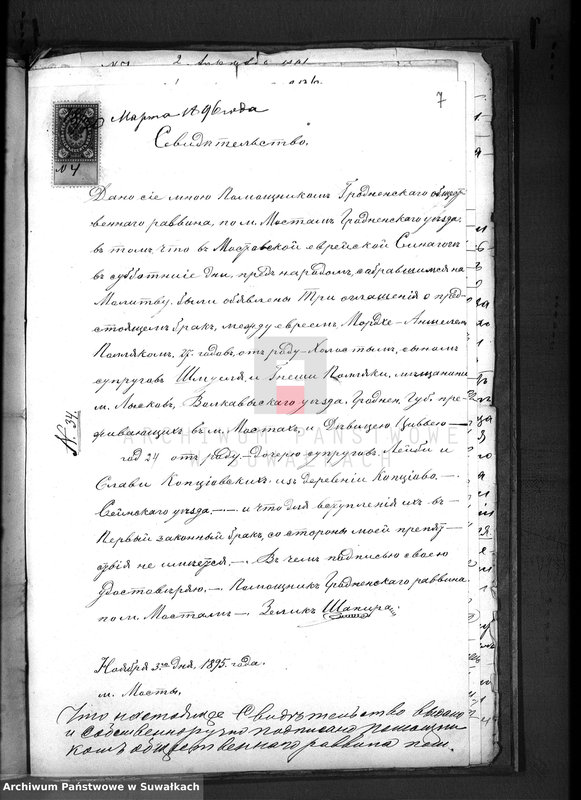 7
Марта 1896 года
Свидѣтельство.
№ 4
Дано сіе мною Помощникомъ Гродненскаго общест
веннаго раввина, по м. Мостамъ Гродненскаго уѣзда,
въ томъ что въ Мостовской еврейской Синагогѣ
въ субботніе дни, предъ народомъ, собравшимся на
Молитву, были объявлены Три оглашенія о пред-
стоящемъ бракѣ, между евреемъ Мордхе-Аншелемъ
Полякомъ, годовъ отъ роду - Холостымъ, сыномъ
супруговъ Шмуеля и Гнеши Поляки, мѣщанами
м. Лысковъ, Волкавыскаго уѣзда, Гроднен. Губ. пре-
живающихъ въ м. Мостахъ, и Дѣвицею Цивьею
№ 34
год 24 отъ роду - дочерью супруговъ Лейби и
Слави Копціовскихъ изъ деревни Копціово -
Сейнскаго уѣзда, - и что для вступленія ихъ въ -
Первый законный бракъ, со стороны моей препят
ствія не имѣется. - Въ чемъ подписью своею
удостовѣряю. - Помощникъ Гродненскаго раввина
по м. Мостамъ - Зеликъ Шапира.
Ноября 3го дня, 1895 года.
м. Мосты,
Что настоящее Свидѣтельство выдано
и собственноручно подписано помощни
комъ общественнаго раввина по м.
ARCHIWUM PAŃSTWOWE
W SUWAŁKACH
Archiwum Państwowe w Suwałkach